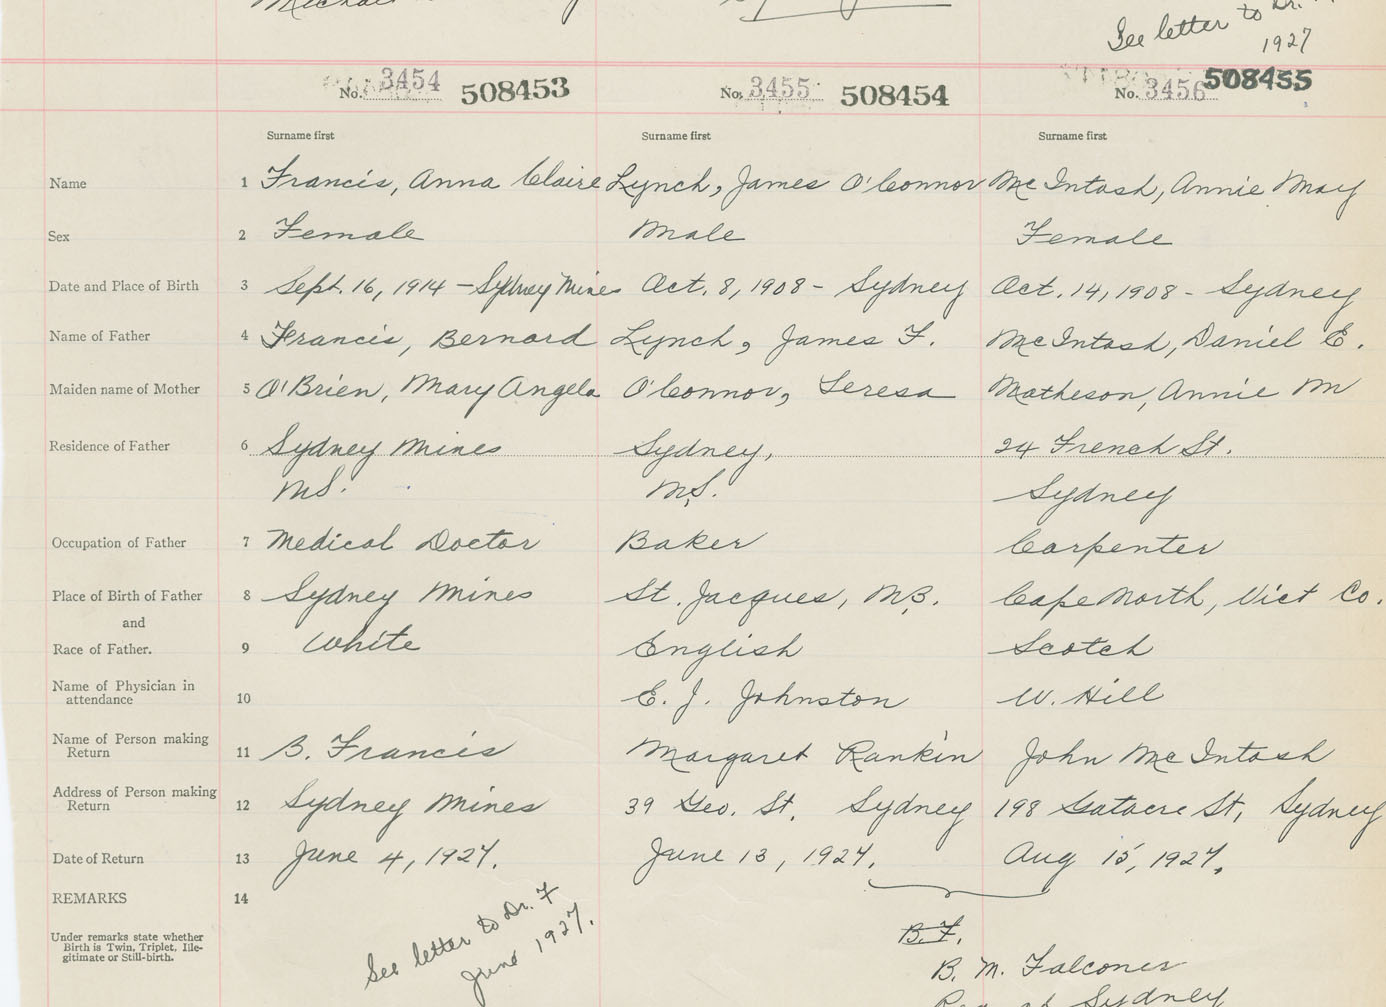 See letter to Dr.
1927
No. 3454 508453 No. 3455 508454 No. 3456 508455
Surname first Surname first Surname first
Name 1 Francis, Anna Claire Lynch, James O'Connor McIntosh, Annie May
Sex 2 Female Male Female
Date and Place of Birth 3 Sept. 16, 1914 - Sydney Mines Oct. 8, 1908 - Sydney Oct. 14, 1908 - Sydney
Name of Father 4 Francis, Bernard Lynch, James F. McIntosh, Daniel E.
Maiden name of Mother 5 O'Brien, Mary Angela O'Connor, Teresa Matheson, Annie M
Residence of Father 6 Sydney Mines Sydney, 24 French St.
N.S. N.S. Sydney
Occupation of Father 7 Medical Doctor Baker Carpenter
Place of Birth of Father 8 Sydney Mines St. Jacques, N.B. Cape North, Vict Co.
and
Race of Father. 9 White English Scotch
Name of Physician in
attendance 10 E. J. Johnston W. Hill
Name of Person making
Return 11 B. Francis Margaret Rankin John McIntosh
Address of Person making
Return 12 Sydney Mines 39 Geo. St. Sydney 198 Gatacre St, Sydney
Date of Return 13 June 4, 1927. June 13, 1927. Aug 15, 1927.
REMARKS 14
See letter to Dr. F
June 1927.
Under remarks state whether
Birth is Twin, Triplet, Ille-
gitimate or Still-birth.
B.F.
B. M. Falconer
Reg. at Sydney